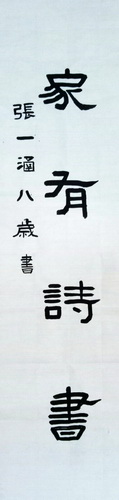 家有詩書
張一涵八歲書